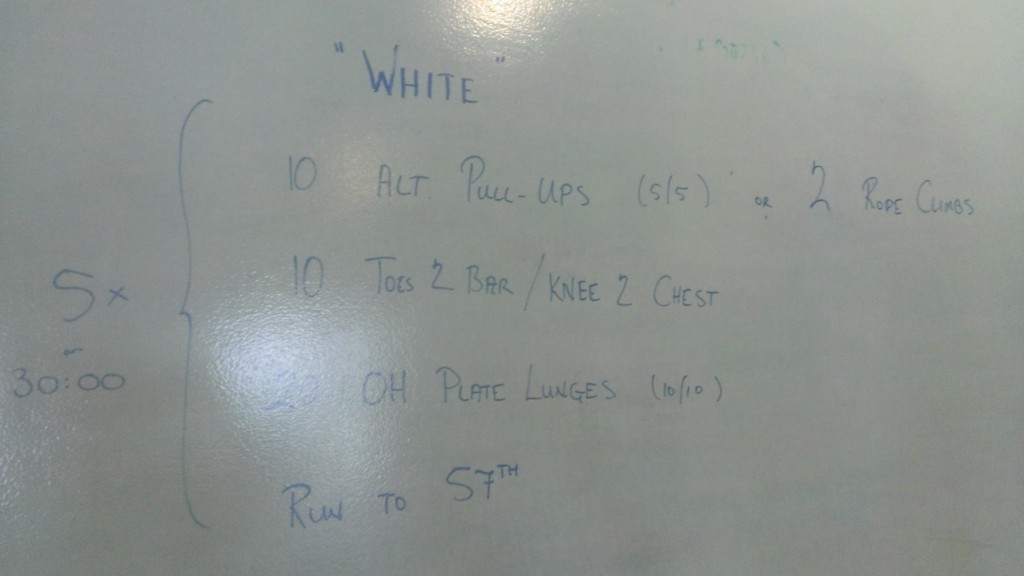 "WHITE"
10 ALT. PULL-UPS (5/5) OR 2 ROPE CLIMBS
5x
10 TOES 2 BAR / KNEE 2 CHEST
OR
30:00
20 OH PLATE LUNGES (10/10)
RUN TO 57TH